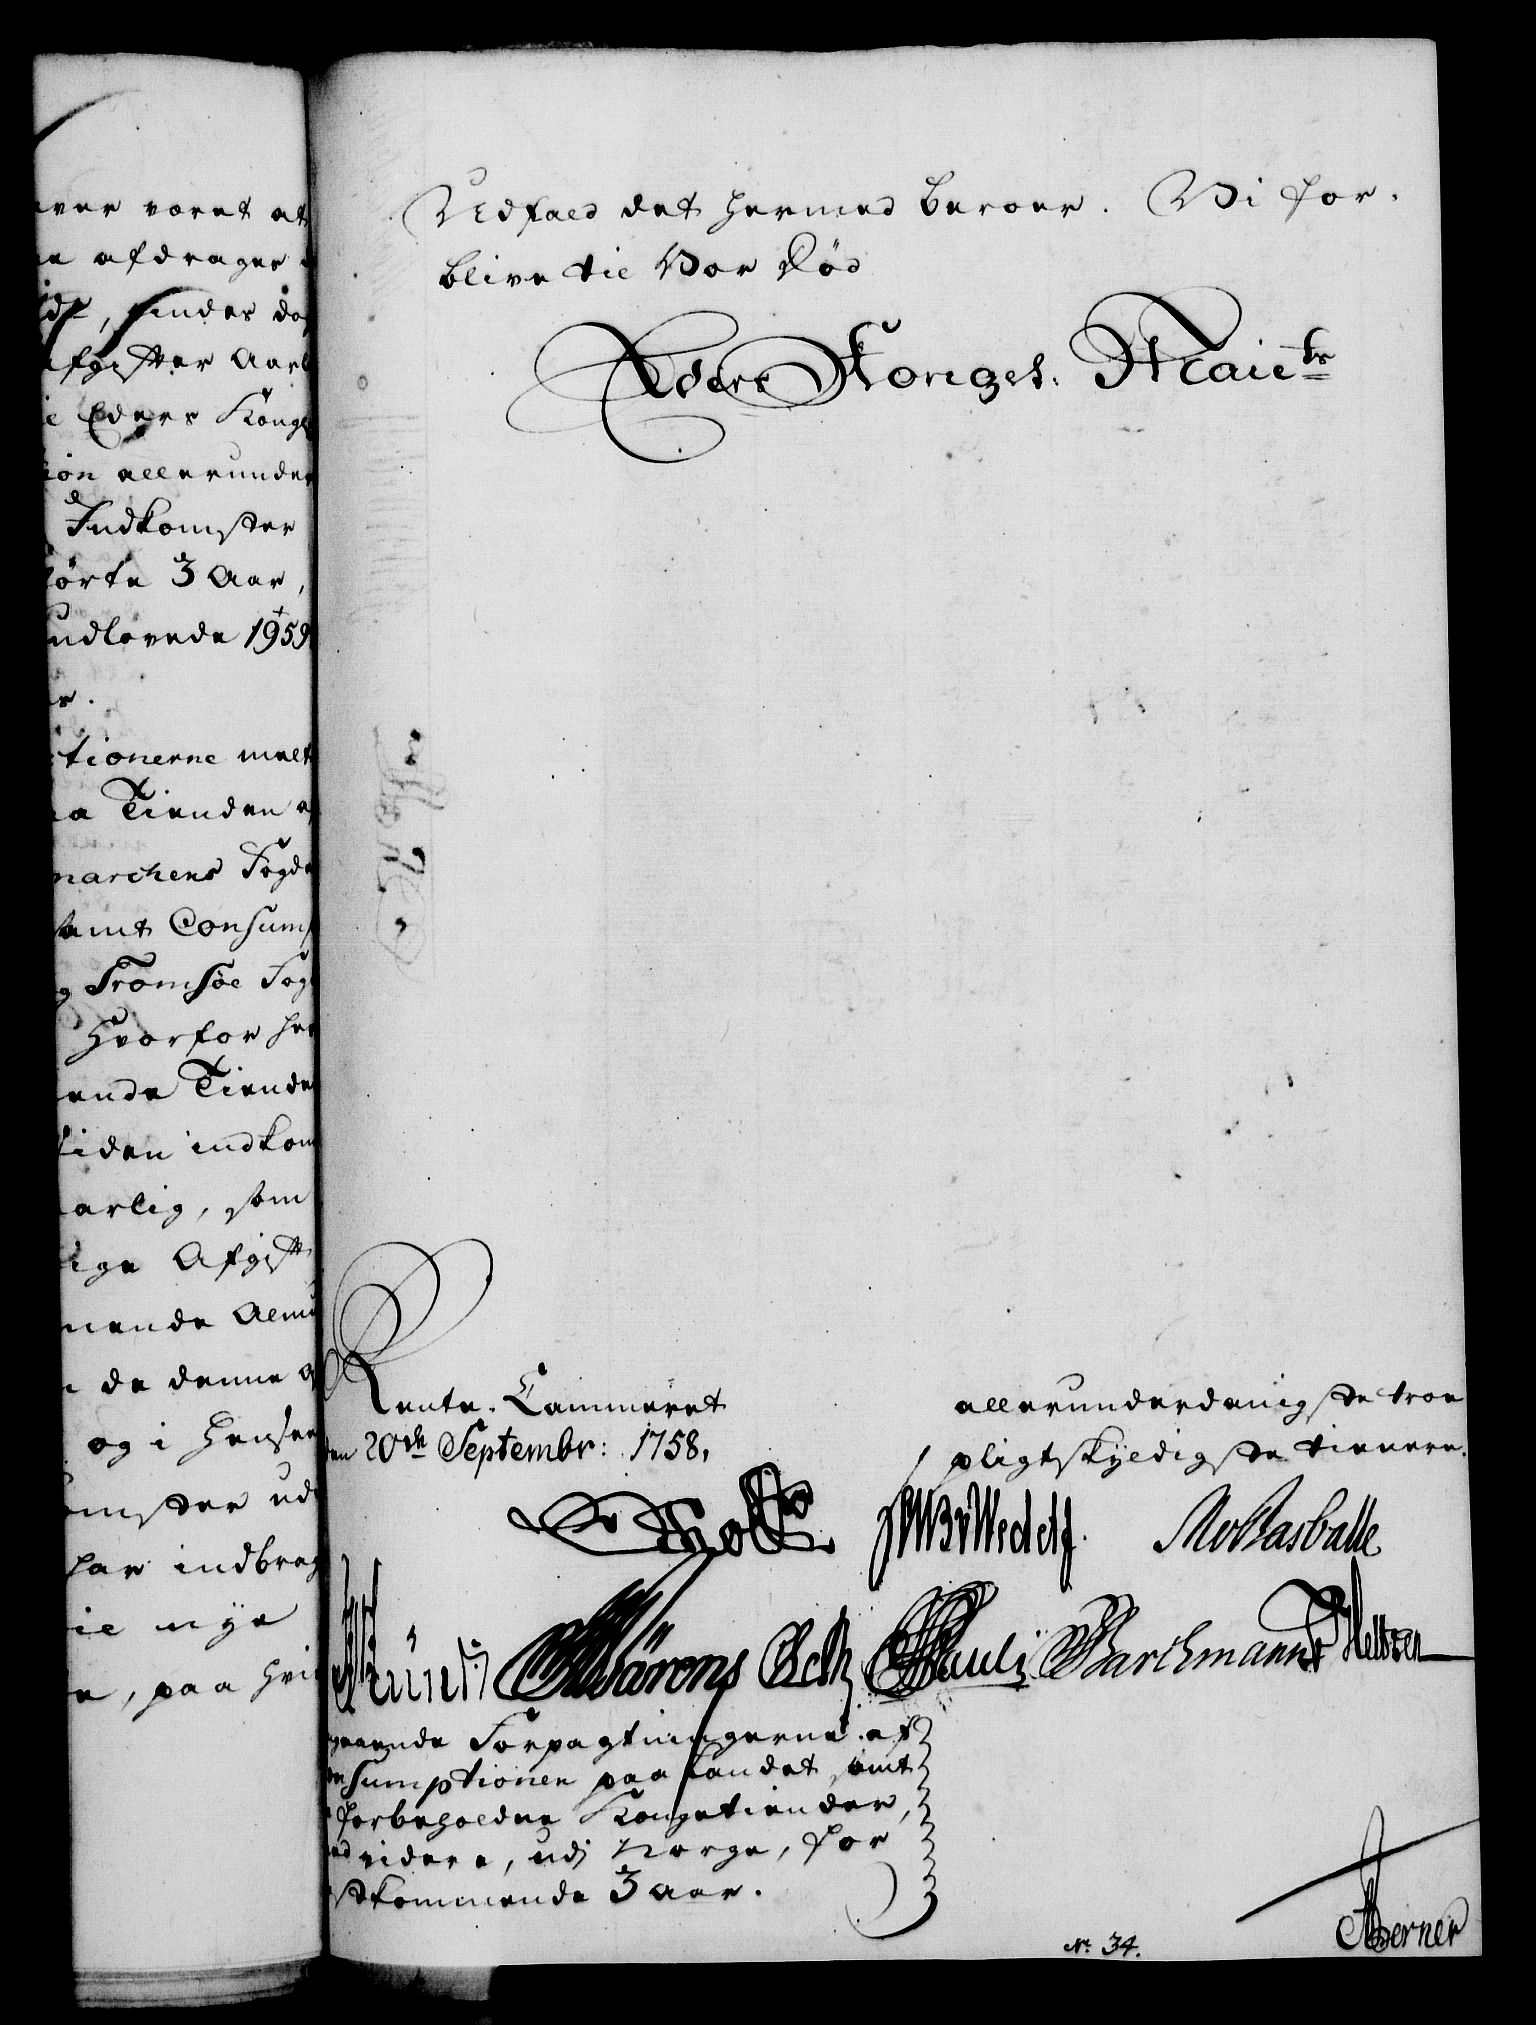 ever været at
afdrages
findes do
afgifter Aarl
Eders Kongl
ion allerunder
Indkomster
førte 3 Aar,
udlovede 1959
tionerne melt
Tienden
marchens Fogde
samt Consump
Tromsøe Fog
Hvorfor her
ende Tiende
tiden indkom
aarlig, som
lige Afgift
nende
de denne
og i Hensee
omster ud
har indbrag
nye
paa hvi
Udfald det hermed beroer. Vi for-
blive til Vor Død
Eders Kongel. Maiets
Rente-Cammeret
den 20de Septembr: 1758,
allerunderdanigste troe
pligtskyldigste tienere.
Holst Wedelf.
Mørons Beck Pauli Barchmann Heltzen
gaaende Forpagtningerne af
sumptionen paa Landet samt
forbeholdne Kongetiender,
videre, udi Norge, for
stkommende 3 Aar.
Berner
No. 34.